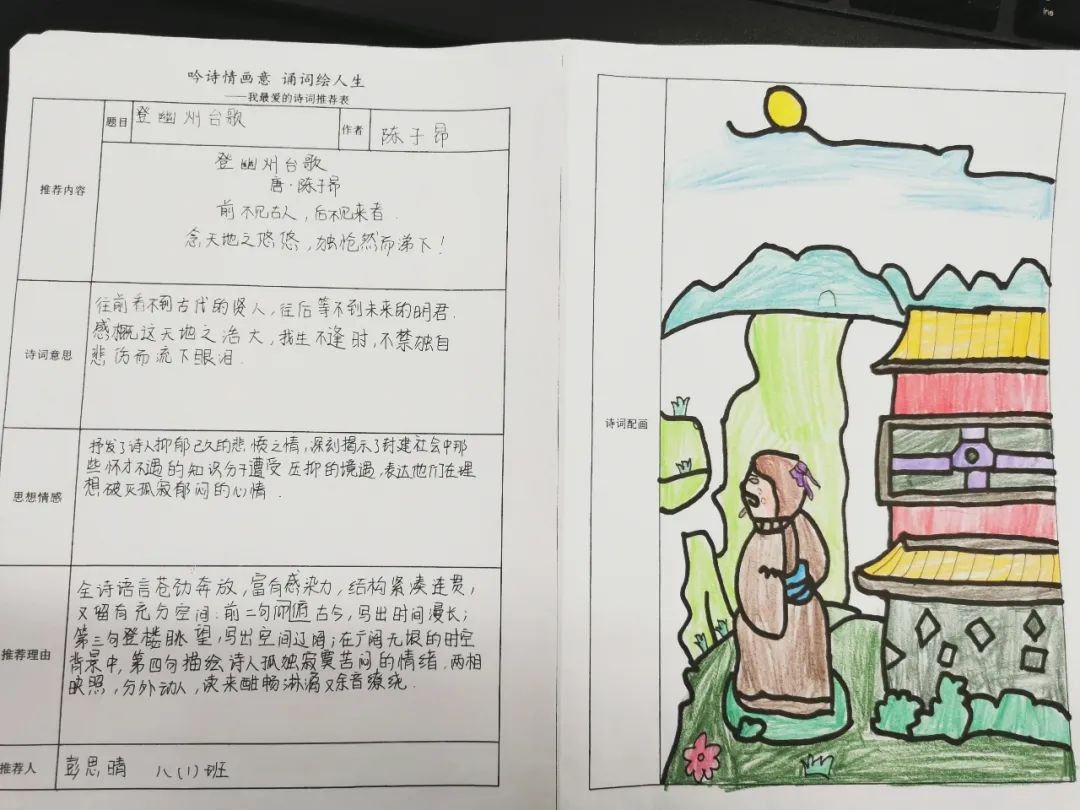 吟诗情画意 诵词绘人生
——我最爱的诗词推荐表
题目 登幽州台歌 作者 陈子昂
推荐内容
登幽州台歌
唐·陈子昂
前不见古人，后不见来者.
念天地之悠悠，独怆然而涕下！
诗词意思
往前看不到古代的贤人，往后等不到未来的明君.
感概这天地之浩大，我生不逢时，不禁独自
悲伤而流下眼泪.
思想情感
抒发了诗人抑郁已久的悲愤之情，深刻揭示了封建社会中那
些怀才不遇的知识分子遭受压抑的境遇，表达他们在理
想破灭孤寂郁闷的心情.
推荐理由
全诗语言苍劲奔放，富有感染力，结构紧凑连贯，
又留有充分空间.前二句俯古今，写出时间漫长；
第三句登楼眺望，写出空间辽阔；在广阔无垠的时空
背景中，第四句描绘诗人孤独寂寞苦闷的情绪，两相
映照，分外动人，读来酣畅淋漓又余音缭绕.
推荐人
彭思晴 八(1)班
诗词配画
ins